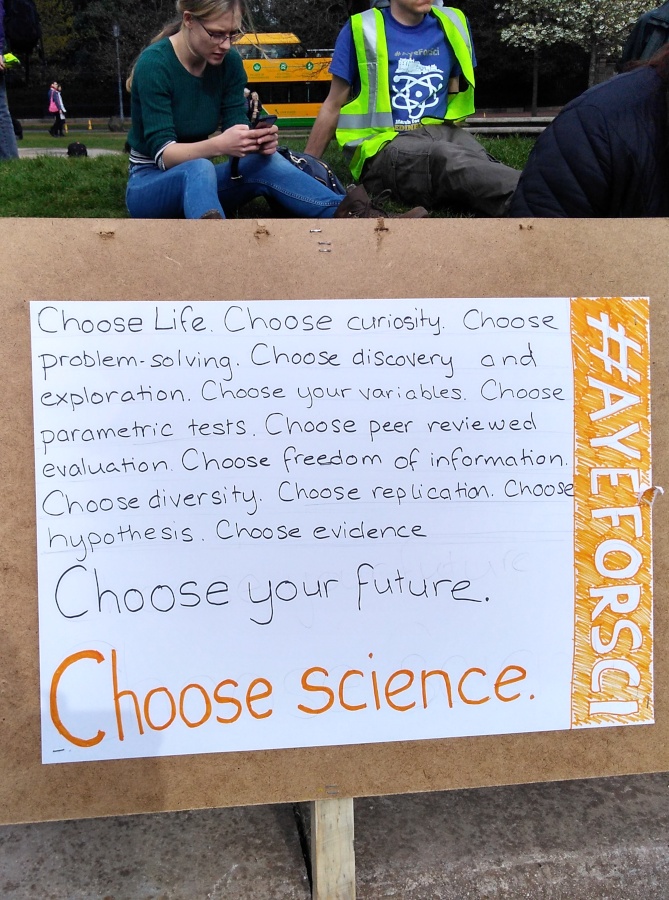 #AyeForSci
EDINBURGH
Choose Life. Choose curiosity. Choose
problem-solving. Choose discovery and
exploration. Choose your variables. Choose
parametric tests. Choose peer reviewed
evaluation. Choose freedom of information.
Choose diversity. Choose replication. Choose
hypothesis. Choose evidence
Choose your future.
Choose science.
#AYEFORSCI